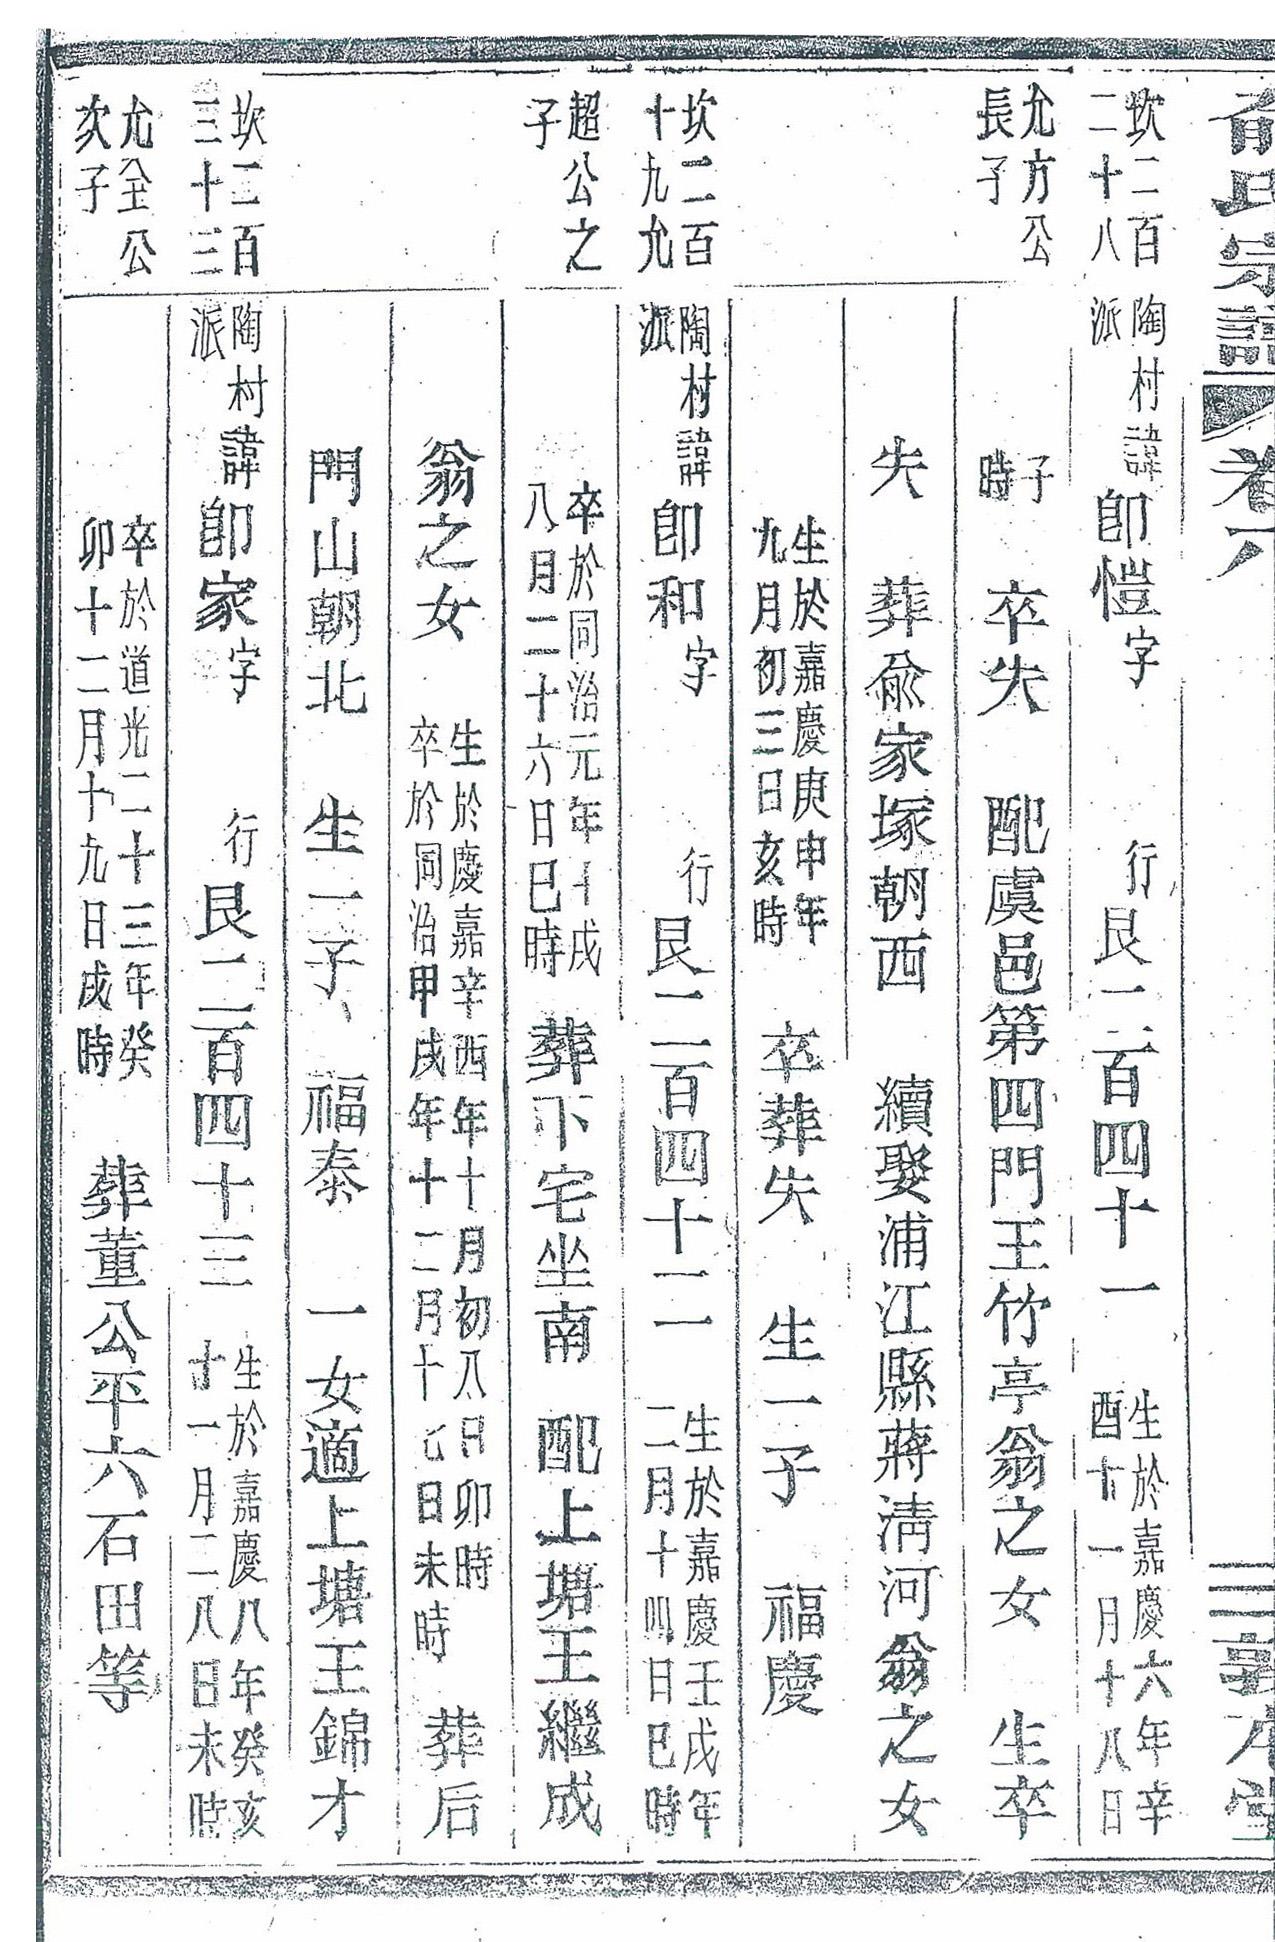 氏宗譜 卷 三 敦本堂
坎二百二十八 陶村派 諱即愷字 行艮二百四十一 生於嘉慶六年辛酉十一月十八日
允方公長子 子時 卒失 配虞邑第四門王竹亭翁之女 生卒
失 葬兪家塚朝西 續娶浦江縣蔣清河翁之女
生於嘉慶庚申年九月初三日亥時 卒葬失 生一子 福慶
坎二百十九允 陶村派 諱即和字 行艮二百四十二 生於嘉慶壬戌年二月十四日巳時
超公之子 卒於同治元年十戌八月二十六日巳時 葬下宅坐南 配上塘王繼成
翁之女 生於慶嘉辛酉年十月初八日卯時卒於同治甲戌年十二月十七日未時 葬后
門山朝北 生一子、福泰 一女適上塘王錦才
坎二百三十三 陶村派 諱即家字 行艮二百四十三 生於嘉慶八年癸亥十一月二八日未時
允全公次子 卒於道光二十三年癸卯十二月十九日戌時 葬董公平六石田等